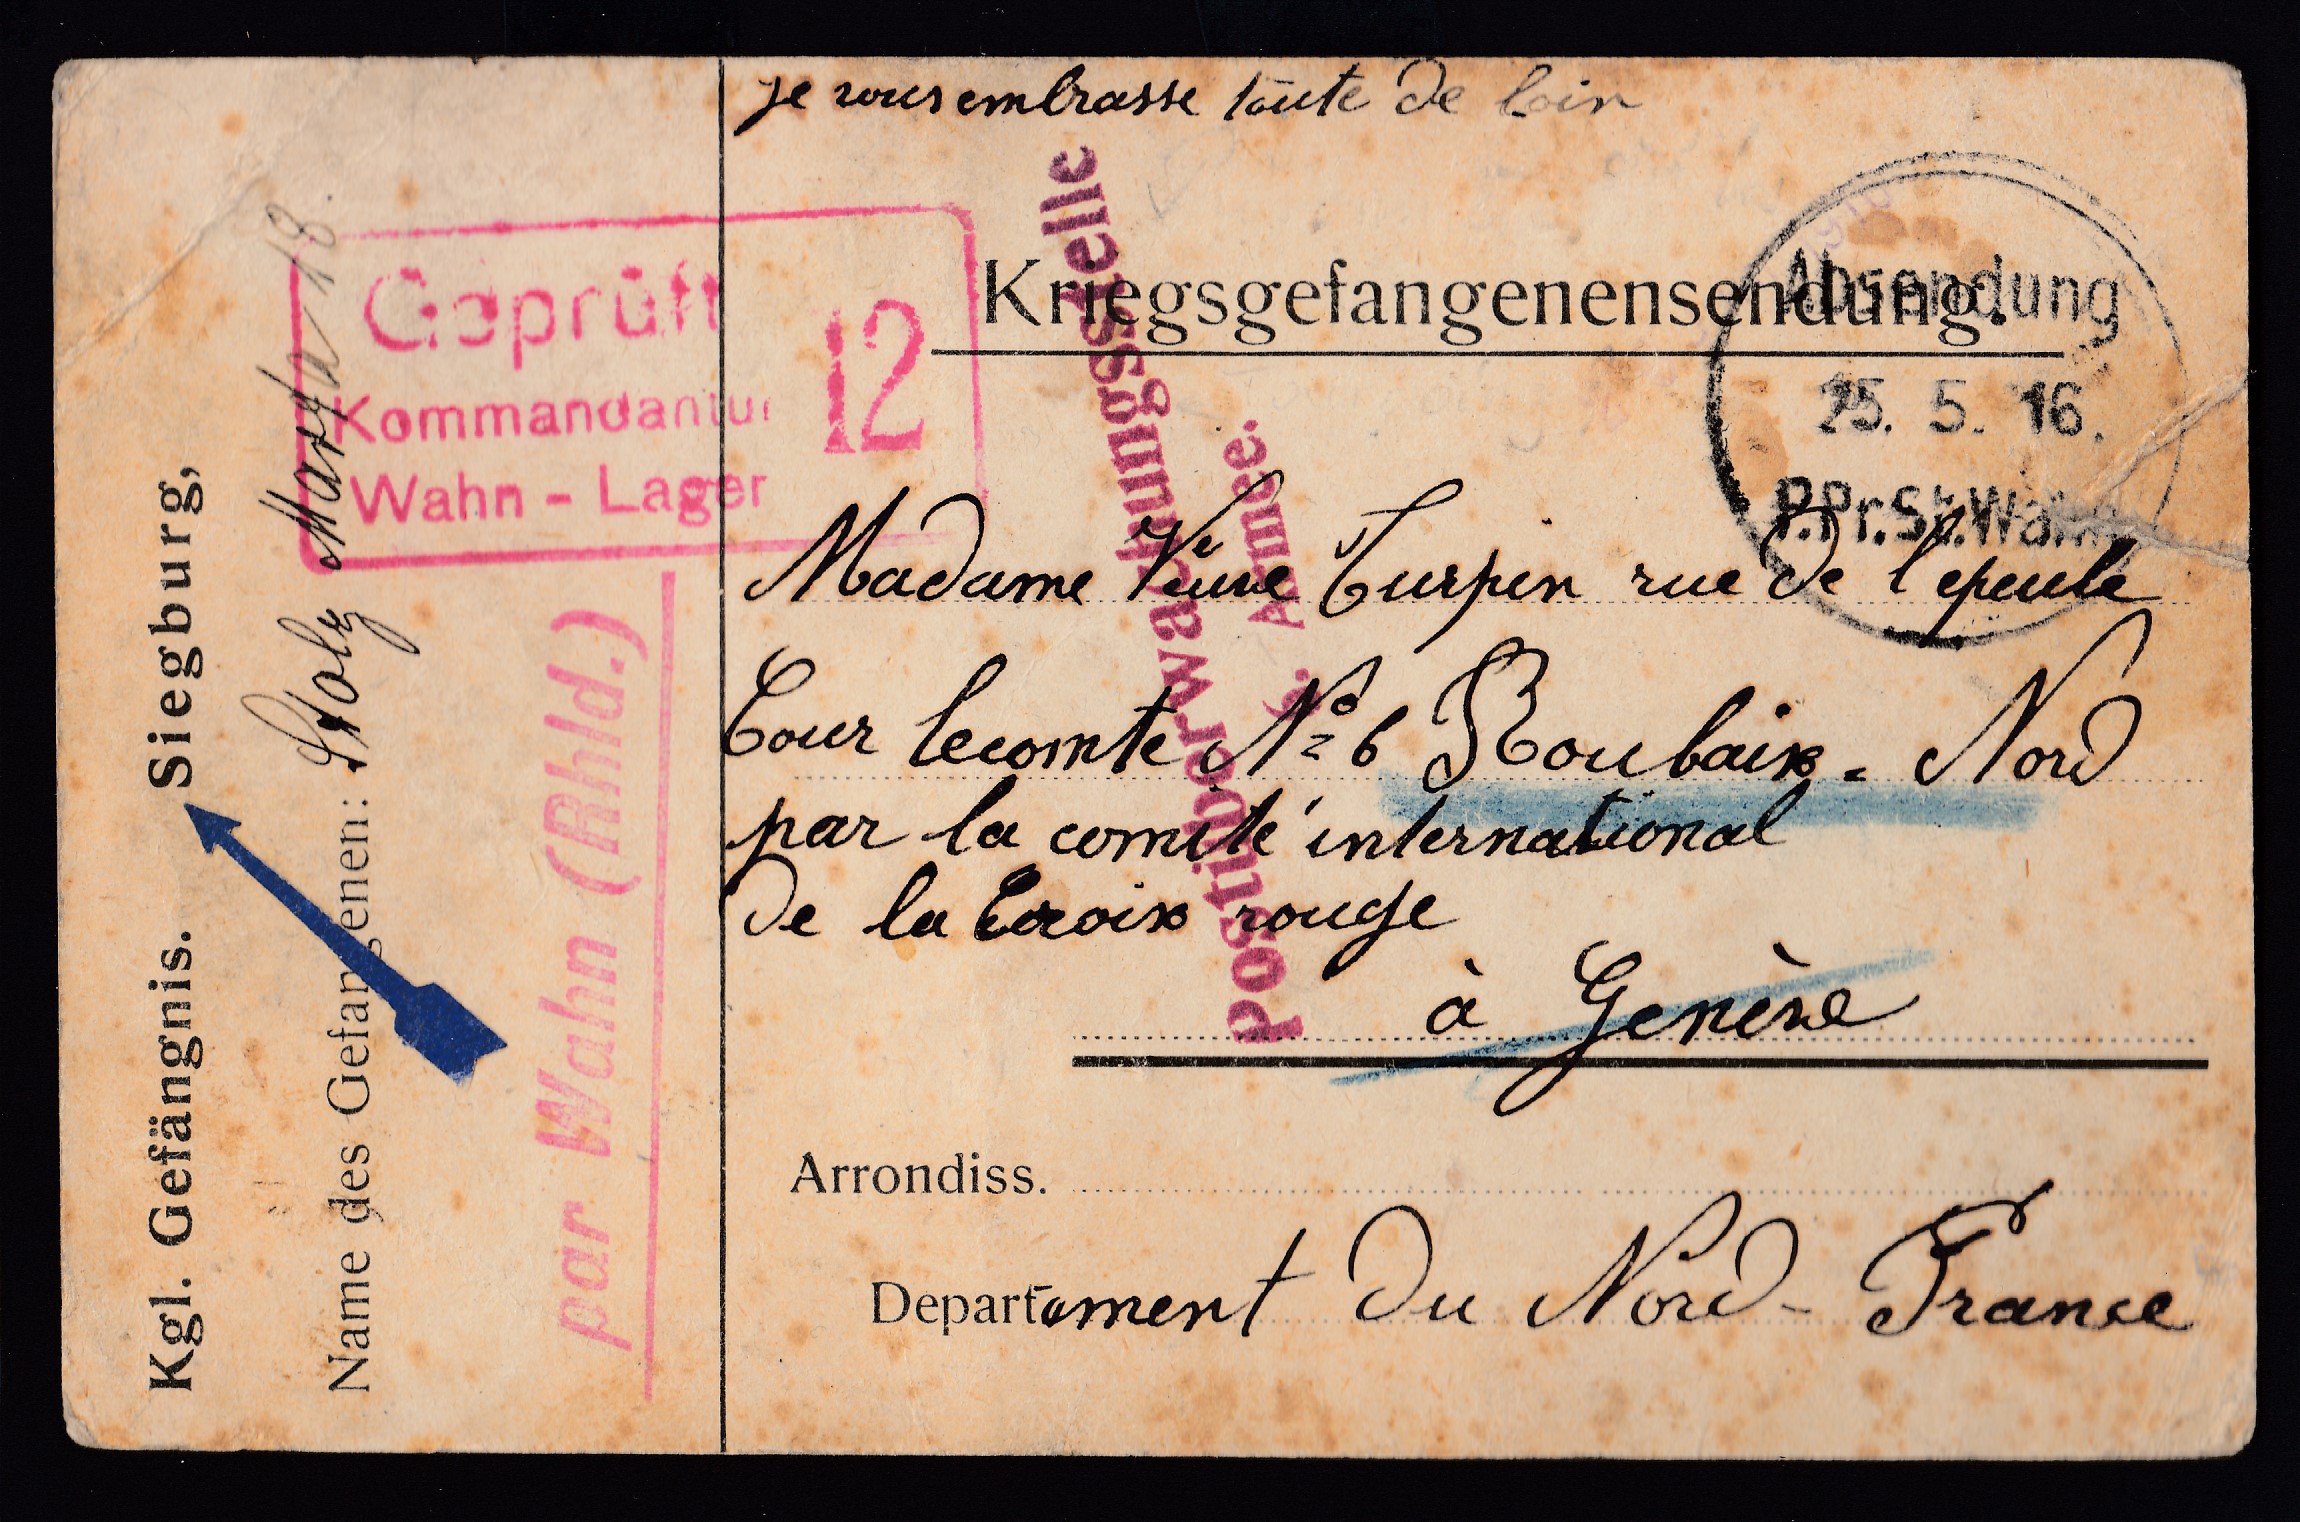 je vous embrasse toute de loin
Kriegsgefangenensendung.
Absendung
25. 5. 16.
P.Pr.St.Wahn
Geprüft
12
Kommandantur
Wahn - Lager
Postüberwachungsstelle
6. Armee.
Madame Veuve Turpin rue de l'epeule
Cour lecomte Nº 6 Roubaix - Nord
par la comité international
de la Croix rouge
à Genève
Arrondiss.
Departement du Nord - France
Kgl. Gefängnis. Siegburg,
Name des Gefangenen: Stolz Marya 18.
par Wahn (Rhld.)